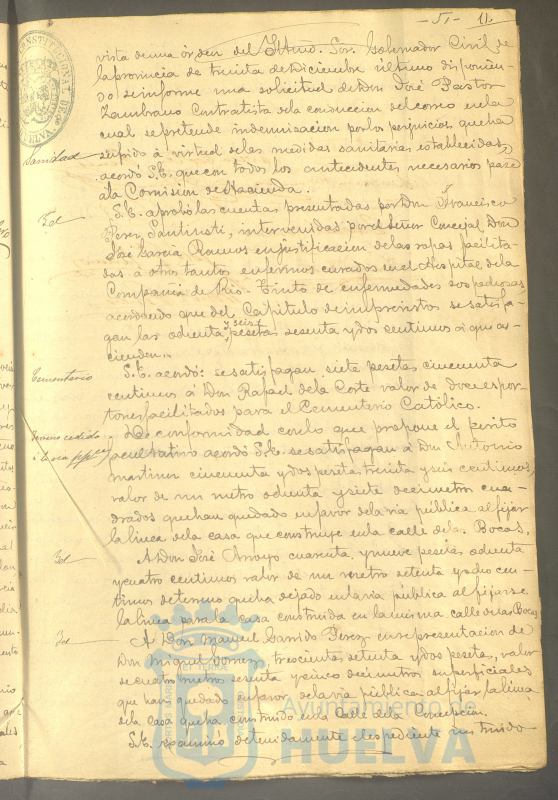 - 51 - 11.
vista de una órden del Iltmo. Sor. Gobernador Civil de
la provincia de treinta de Diciembre último disponien-
do se informe una solicitud de Don José Pastor
Zambrano Contratista de la conduccion del correo en la
cual se pretende indemnizacion por los perjuicios que ha
Sanidad
sufrido á virtud de las medidas sanitarias establecidas,
acordó S.E. que con todos los antecedentes necesarios pase
á la Comision de Hacienda.
Id
S.E. aprobó las cuentas presentadas por Don Francisco
Perez Santinsti, intervenidas por el Señor Concejal Don
José García Ramos en justificacion de las ropas facilita-
das á otros tantos enfermos curados en el Hospital de la
Compañia de Rio-Tinto de enfermedades sospechosas
acordando que del Capitulo de imprevistos se satisfa-
gan las ochenta y seis pesetas sesenta y dos centimos á que as-
cienden.
Cementerio
S.E. acordó: se satisfagan siete pesetas cincuenta
centimos á Don Rafael de la Corte valor de doce espor-
tones facilitados para el Cementerio Católico.
Terreno cedido
á la via ppca
De conformidad con lo que propone el perito
facultativo acordó S.E. se satisfagan á Don Antonio
Martinez cincuenta y dos pesetas treinta y seis centimos,
valor de un metro ochenta y siete decimetros cua-
drados que han quedado en favor de la via pública al fijar
la linea de la casa que construye en la calle de las Bocas.
Id
A Don José Arroyo cuarenta y nueve pesetas ochenta
y cuatro centimos valor de un metro setenta y ocho cen-
timos de terreno que ha dejado en la via pública al fijarse
la linea para la casa construida en la misma calle de las Bocas
Id
A Don Manuel Garrido Perez en representacion de
Don Miguel Gomez, trescientas setenta y dos pesetas, valor
de cuatro metros sesenta y cinco decimetros superficiales
que han quedado en favor de la via pública al fijar la linea
de la casa que ha construido en la Calle de la Concepcion.
S.E. examinó detenidamente el espediente instruido
Ayuntamiento de
HUELVA